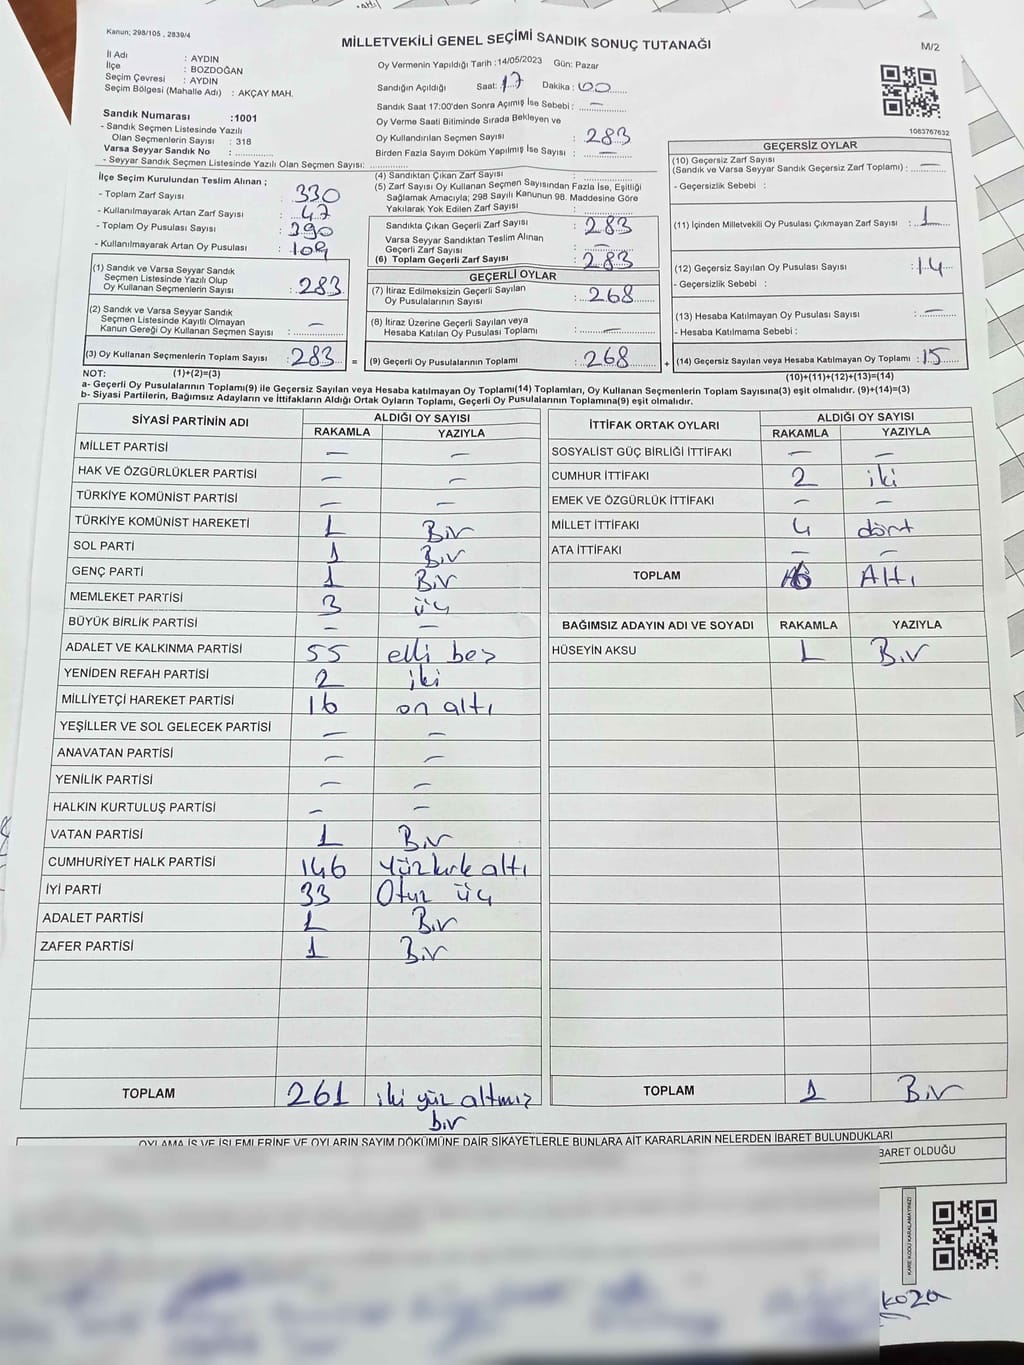 Kanun; 298/105 , 2839/4
MİLLETVEKİLİ GENEL SEÇİMİ SANDIK SONUÇ TUTANAĞI
M/2
İl Adı : AYDIN
İlçe : BOZDOĞAN
Seçim Çevresi : AYDIN
Seçim Bölgesi (Mahalle Adı) : AKÇAY MAH.
Sandık Numarası :1001
- Sandık Seçmen Listesinde Yazılı
Olan Seçmenlerin Sayısı : 318
Varsa Seyyar Sandık No :
- Seyyar Sandık Seçmen Listesinde Yazılı Olan Seçmen Sayısı:
Oy Vermenin Yapıldığı Tarih :14/05/2023 Gün: Pazar
Sandığın Açıldığı Saat: 17 Dakika : 00
Sandık Saat 17:00'den Sonra Açımış İse Sebebi : —
Oy Verme Saati Bitiminde Sırada Bekleyen ve
Oy Kullandırılan Seçmen Sayısı : 283
Birden Fazla Sayım Döküm Yapılmış İse Sayısı : —
1063767632
İlçe Seçim Kurulundan Teslim Alınan ;
- Toplam Zarf Sayısı : 330
- Kullanılmayarak Artan Zarf Sayısı : 47
- Toplam Oy Pusulası Sayısı : 390
- Kullanılmayarak Artan Oy Pusulası : 109
(1) Sandık ve Varsa Seyyar Sandık
Seçmen Listesinde Yazılı Olup
Oy Kullanan Seçmenlerin Sayısı : 283
(2) Sandık ve Varsa Seyyar Sandık
Seçmen Listesinde Kayıtlı Olmayan
Kanun Gereği Oy Kullanan Seçmen Sayısı : —
(3) Oy Kullanan Seçmenlerin Toplam Sayısı : 283 =
(4) Sandıktan Çıkan Zarf Sayısı :
(5) Zarf Sayısı Oy Kullanan Seçmen Sayısından Fazla İse, Eşitliği
Sağlamak Amacıyla; 298 Sayılı Kanunun 98. Maddesine Göre
Yakılarak Yok Edilen Zarf Sayısı :
Sandıkta Çıkan Geçerli Zarf Sayısı : 283
Varsa Seyyar Sandıktan Teslim Alınan
Geçerli Zarf Sayısı : —
(6) Toplam Geçerli Zarf Sayısı : 283
GEÇERLİ OYLAR
(7) İtiraz Edilmeksizin Geçerli Sayılan
Oy Pusulalarının Sayısı : 268
(8) İtiraz Üzerine Geçerli Sayılan veya
Hesaba Katılan Oy Pusulası Toplamı : —
(9) Geçerli Oy Pusulalarının Toplamı : 268 +
GEÇERSİZ OYLAR
(10) Geçersiz Zarf Sayısı
(Sandık ve Varsa Seyyar Sandık Geçersiz Zarf Toplamı) : —
- Geçersizlik Sebebi :
(11) İçinden Milletvekili Oy Pusulası Çıkmayan Zarf Sayısı : 1
(12) Geçersiz Sayılan Oy Pusulası Sayısı : 14
- Geçersizlik Sebebi :
(13) Hesaba Katılmayan Oy Pusulası Sayısı : —
- Hesaba Katılmama Sebebi :
(14) Geçersiz Sayılan veya Hesaba Katılmayan Oy Toplamı : 15
NOT: (1)+(2)=(3)
(10)+(11)+(12)+(13)=(14)
a- Geçerli Oy Pusulalarının Toplamı(9) ile Geçersiz Sayılan veya Hesaba katılmayan Oy Toplamı(14) Toplamları, Oy Kullanan Seçmenlerin Toplam Sayısına(3) eşit olmalıdır. (9)+(14)=(3)
b- Siyasi Partilerin, Bağımsız Adayların ve İttifakların Aldığı Ortak Oyların Toplamı, Geçerli Oy Pusulalarının Toplamına(9) eşit olmalıdır.
SİYASİ PARTİNİN ADI ALDIĞI OY SAYISI
RAKAMLA YAZIYLA
MİLLET PARTİSİ — —
HAK VE ÖZGÜRLÜKLER PARTİSİ — —
TÜRKİYE KOMÜNİST PARTİSİ — —
TÜRKİYE KOMÜNİST HAREKETİ 1 Bir
SOL PARTİ 1 Bir
GENÇ PARTİ 1 Bir
MEMLEKET PARTİSİ 3 üç
BÜYÜK BİRLİK PARTİSİ — —
ADALET VE KALKINMA PARTİSİ 55 elli beş
YENİDEN REFAH PARTİSİ 2 iki
MİLLİYETÇİ HAREKET PARTİSİ 16 on altı
YEŞİLLER VE SOL GELECEK PARTİSİ — —
ANAVATAN PARTİSİ — —
YENİLİK PARTİSİ — —
HALKIN KURTULUŞ PARTİSİ — —
VATAN PARTİSİ 1 Bir
CUMHURİYET HALK PARTİSİ 146 yüzkırk altı
İYİ PARTİ 33 Otuz üç
ADALET PARTİSİ 1 Bir
ZAFER PARTİSİ 1 Bir
TOPLAM 261 iki yüz altmış
bir
İTTİFAK ORTAK OYLARI ALDIĞI OY SAYISI
RAKAMLA YAZIYLA
SOSYALİST GÜÇ BİRLİĞİ İTTİFAKI — —
CUMHUR İTTİFAKI 2 iki
EMEK VE ÖZGÜRLÜK İTTİFAKI — —
MİLLET İTTİFAKI 4 dört
ATA İTTİFAKI — —
TOPLAM 6 Altı
BAĞIMSIZ ADAYIN ADI VE SOYADI RAKAMLA YAZIYLA
HÜSEYİN AKSU 1 Bir
TOPLAM 1 Bir
OYLAMA İŞ VE İŞLEMLERİNE VE OYLARIN SAYIM DÖKÜMÜNE DAİR ŞİKAYETLERLE BUNLARA AİT KARARLARIN NELERDEN İBARET BULUNDUKLARI
BARET OLDUĞU
KARE KODU KARALAMAYINIZ!
koza